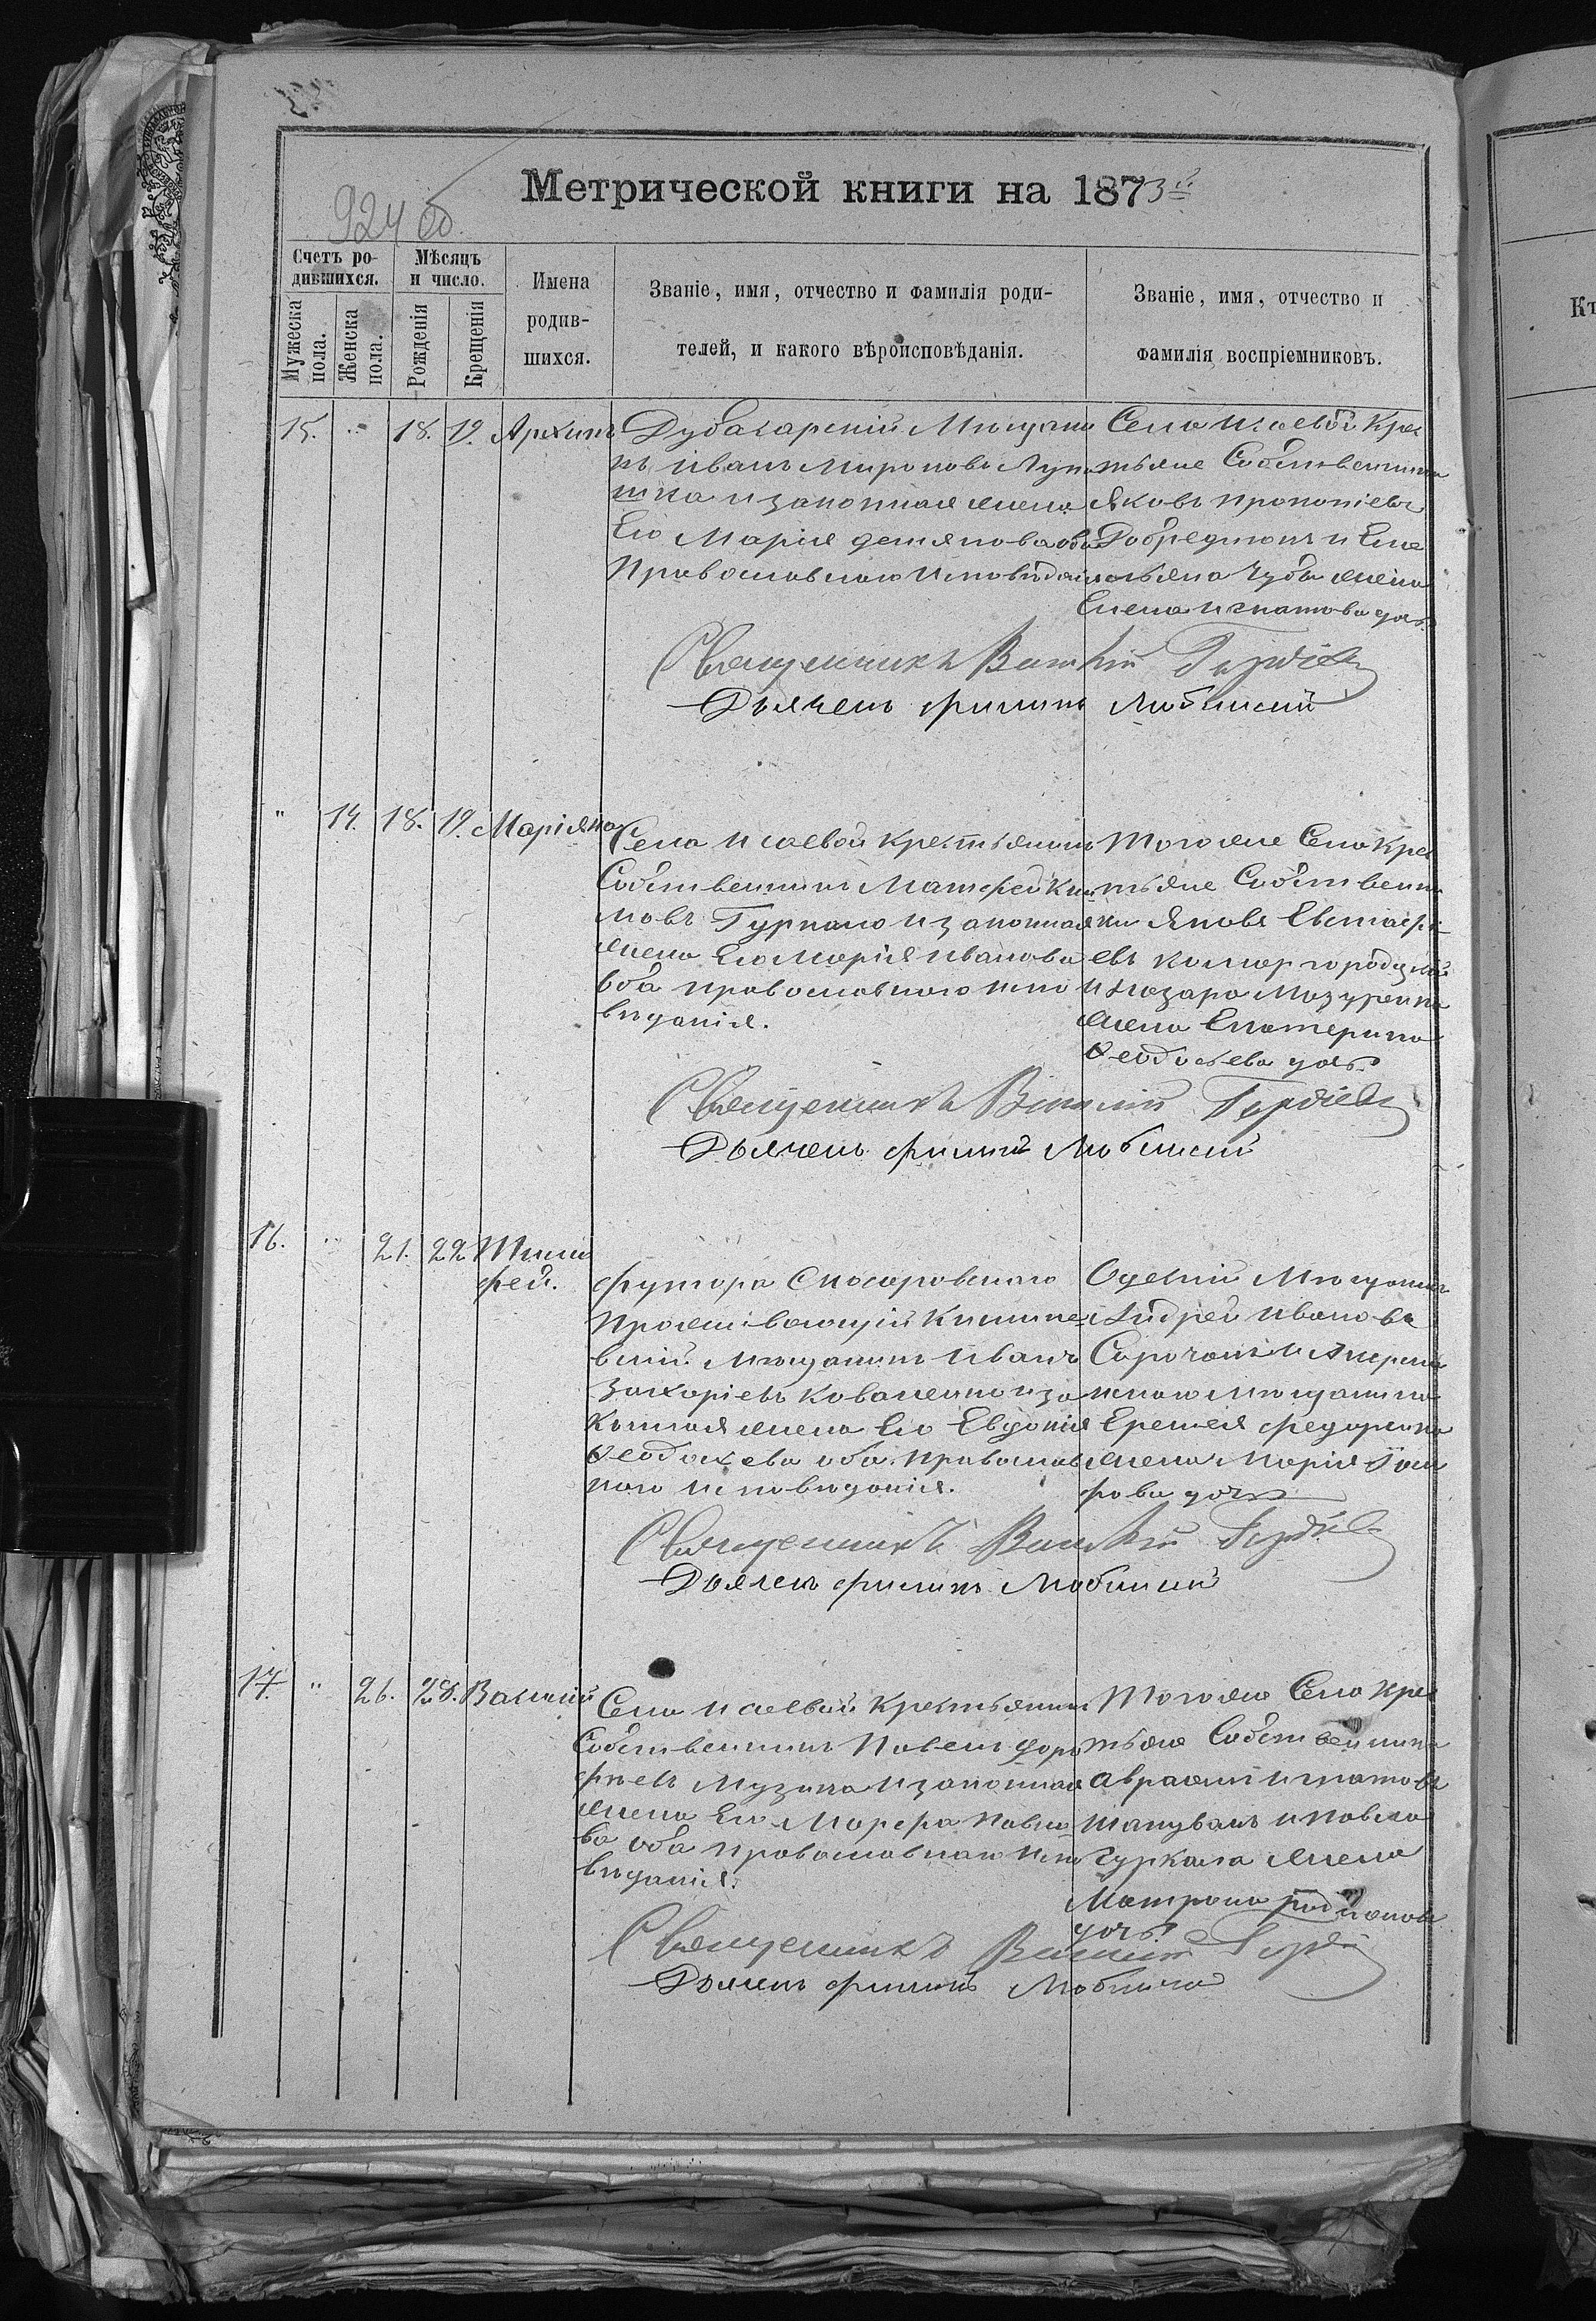 924 об.
Метрической книги на 1873й
Счетъ ро-
дившихся.
Мужеска
пола.
Женска
пола.
Мѣсяцъ
и число.
Рожденія
Крещенія
Имена
родив-
шихся.
Званіе, имя, отчество и фамилія роди-
телей, и какого вѣроисповѣданія.
Званіе, имя, отчество и
фамилія воспріемниковъ.
15. " 18. 19. Архипъ
Мѣщани
нъ Иванъ Мироновъ
и законная жена
Его Марія Демянова оба
Православнаго Исповѣданія
Села Исаевой Крес
тьяне Собственники
Яковъ Прокопіевъ
и Еме
льяна Чубы жена
Елена Игнатова дочь.
Священникъ Василій Гордіевъ
Дьячекъ Филипъ Любинскій
" 14. 18. 19. Маріяна
Села Исаевой Крестьянинъ
Собственникъ Матфей Кли
мовъ и законная
жена Его Марія Иванова
оба православнаго испо
вѣданія.
Тогоже Села Крес
тьяне Собственни
ки Яковъ Евстафі-
евъ
и Лазара Мазуренка
жена Екатерина
Феодосьева дочь
Священникъ Василій Гордіевъ
Дьячекъ Филипъ Любинскій
16. " 21. 22. Тимо
фей.
Хутора
Проживающій Кишине-
вскій Мѣщанинъ Иванъ
Захаріевъ Коваленко и за
конная жена Его Евдокія
Феодосьева оба Православ
наго Исповѣданія.
Одескій Мѣщанинъ
Андрей Ивановъ
Сорочанъ и
Мѣщанина
Еремея Федоренка
жена Марія
рова дочь
Священникъ Василій Гордіевъ
Дьячекъ Филипъ Любинскій
17. " 26. 28. Василій
Села Исаевой Крестьянинъ
Собственникъ Павелъ Доро
феевъ Музыка и законная
жена Его Марфа Павло
ва оба православнаго Испо
вѣданія.
Тогоже Села Крес
тьяне Собственники
Аврамій Игнатовъ
и Павла
жена
Матрона Родионова
дочь.
Священникъ Василій Гордіевъ
Дьячекъ Филипъ Любинскій